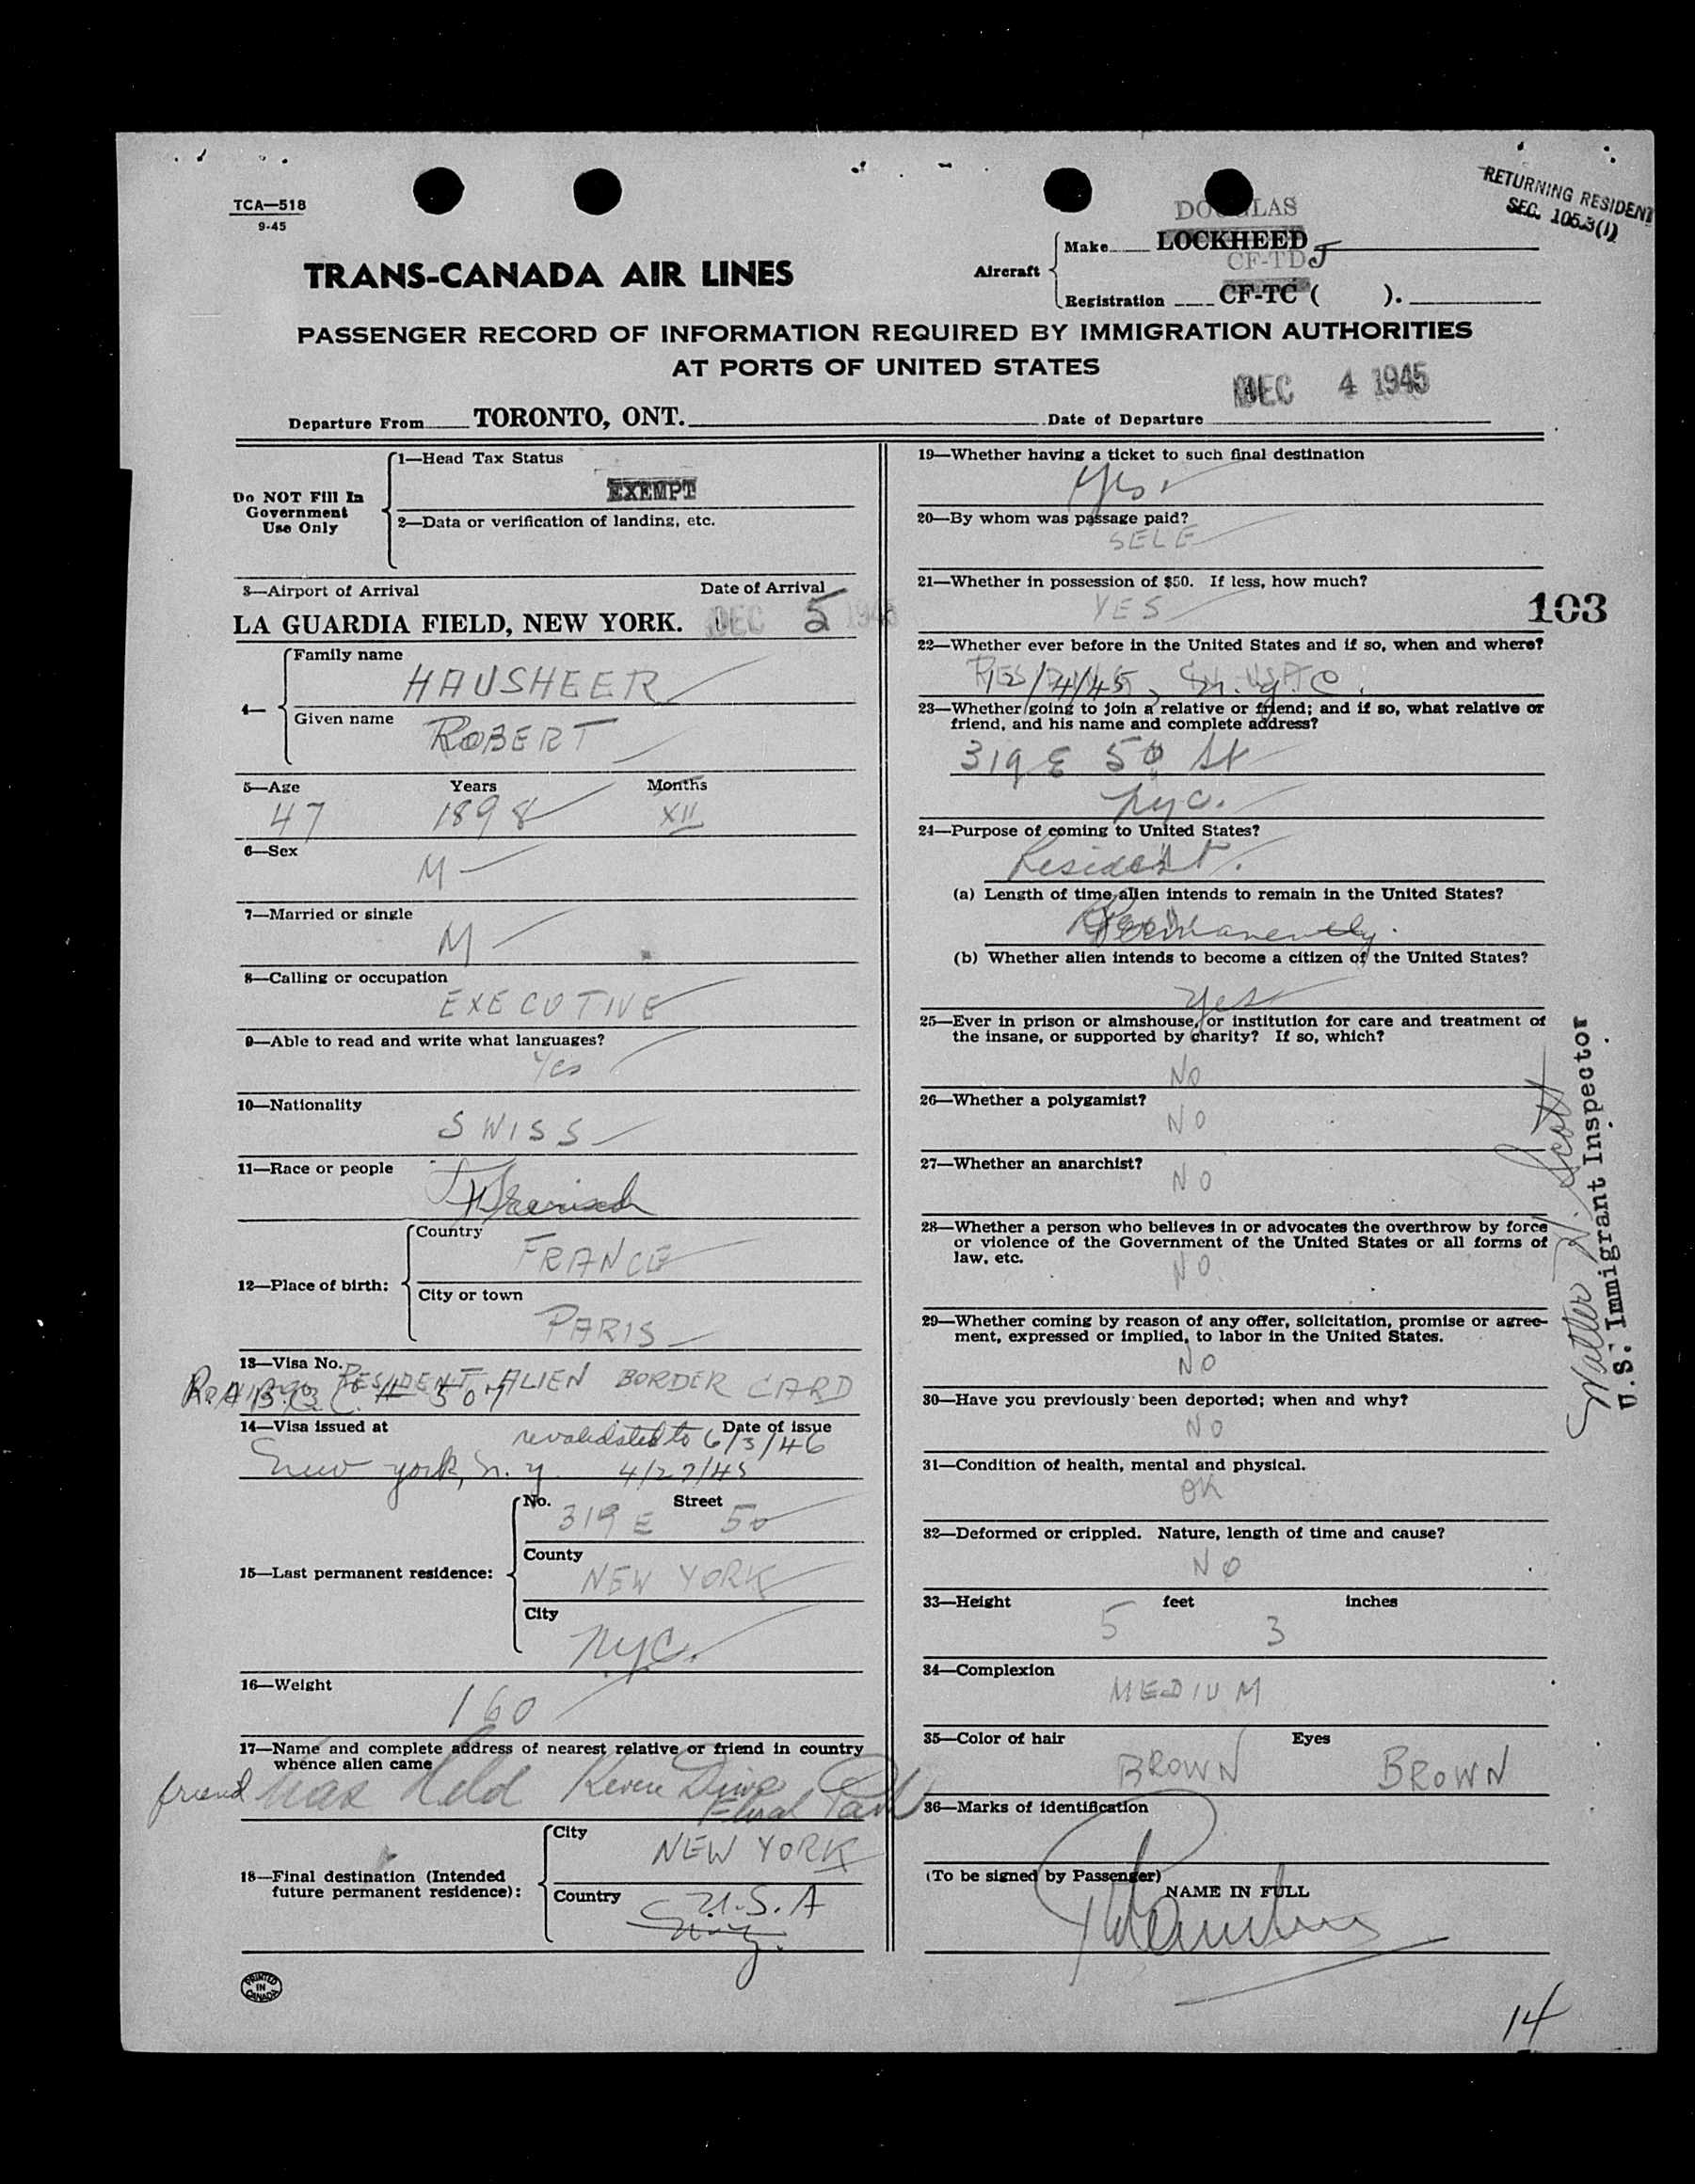 TCA—518
9-45
RETURNING RESIDENT
SEC. 105.3(1)
TRANS-CANADA AIR LINES
DOUGLAS
Aircraft
Make LOCKHEED
CF-TDJ
Registration CF-TC ( ).
PASSENGER RECORD OF INFORMATION REQUIRED BY IMMIGRATION AUTHORITIES
AT PORTS OF UNITED STATES
DEC 4 1945
Departure From TORONTO, ONT. Date of Departure
Do NOT Fill In
Government
Use Only
1—Head Tax Status
EXEMPT
2—Data or verification of landing, etc.
3—Airport of Arrival Date of Arrival
LA GUARDIA FIELD, NEW YORK. DEC 5 1945
4—
Family name
HAUSHEER
Given name
ROBERT
5—Age Years Months
47 1898 XII
6—Sex
M
7—Married or single
M
8—Calling or occupation
EXECUTIVE
9—Able to read and write what languages?
Yes
10—Nationality
SWISS
11—Race or people
12—Place of birth:
Country
FRANCE
City or town
PARIS
13—Visa No.
RESIDENT ALIEN BORDER CARD
14—Visa issued at Date of issue
revalidated to 6/3/46
New York, N.Y. 4/27/45
15—Last permanent residence:
No. Street
319 E 50
County
NEW YORK
City
NYC.
16—Weight
160
17—Name and complete address of nearest relative or friend in country
whence alien came
friend
18—Final destination (Intended
future permanent residence):
City
NEW YORK
Country
U.S.A
N.Y.
PRINTED
IN
CANADA
19—Whether having a ticket to such final destination
Yes.
20—By whom was passage paid?
SELF
21—Whether in possession of $50. If less, how much?
YES
103
22—Whether ever before in the United States and if so, when and where?
12/4/45, N.Y.C.
23—Whether going to join a relative or friend; and if so, what relative or
friend, and his name and complete address?
319 E 50 St
NYC.
24—Purpose of coming to United States?
Resident.
(a) Length of time alien intends to remain in the United States?
Permanently.
(b) Whether alien intends to become a citizen of the United States?
Yes
25—Ever in prison or almshouse, or institution for care and treatment of
the insane, or supported by charity? If so, which?
NO
26—Whether a polygamist?
NO
27—Whether an anarchist?
NO
28—Whether a person who believes in or advocates the overthrow by force
or violence of the Government of the United States or all forms of
law, etc.
NO
29—Whether coming by reason of any offer, solicitation, promise or agree-
ment, expressed or implied, to labor in the United States.
NO
30—Have you previously been deported; when and why?
NO
31—Condition of health, mental and physical.
OK
32—Deformed or crippled. Nature, length of time and cause?
NO
33—Height feet inches
5 3
34—Complexion
MEDIUM
35—Color of hair Eyes
BROWN BROWN
36—Marks of identification
(To be signed by Passenger)
NAME IN FULL
Walter H. Scott
U.S. Immigrant Inspector
14